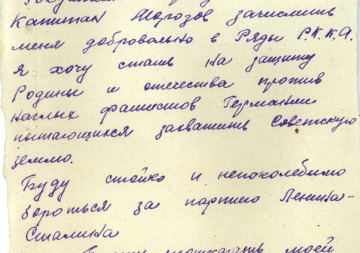 Капитан Морозов зачислить
меня добровольно в Ряды Р.К.К.А.
Я хочу стать на защиту
Родины и отечества против
наглых фашистов Германии
пытающихся захватить Советскую
землю.
Буду стойко и непоколебимо
бороться за партию Ленина-
Сталина
моей